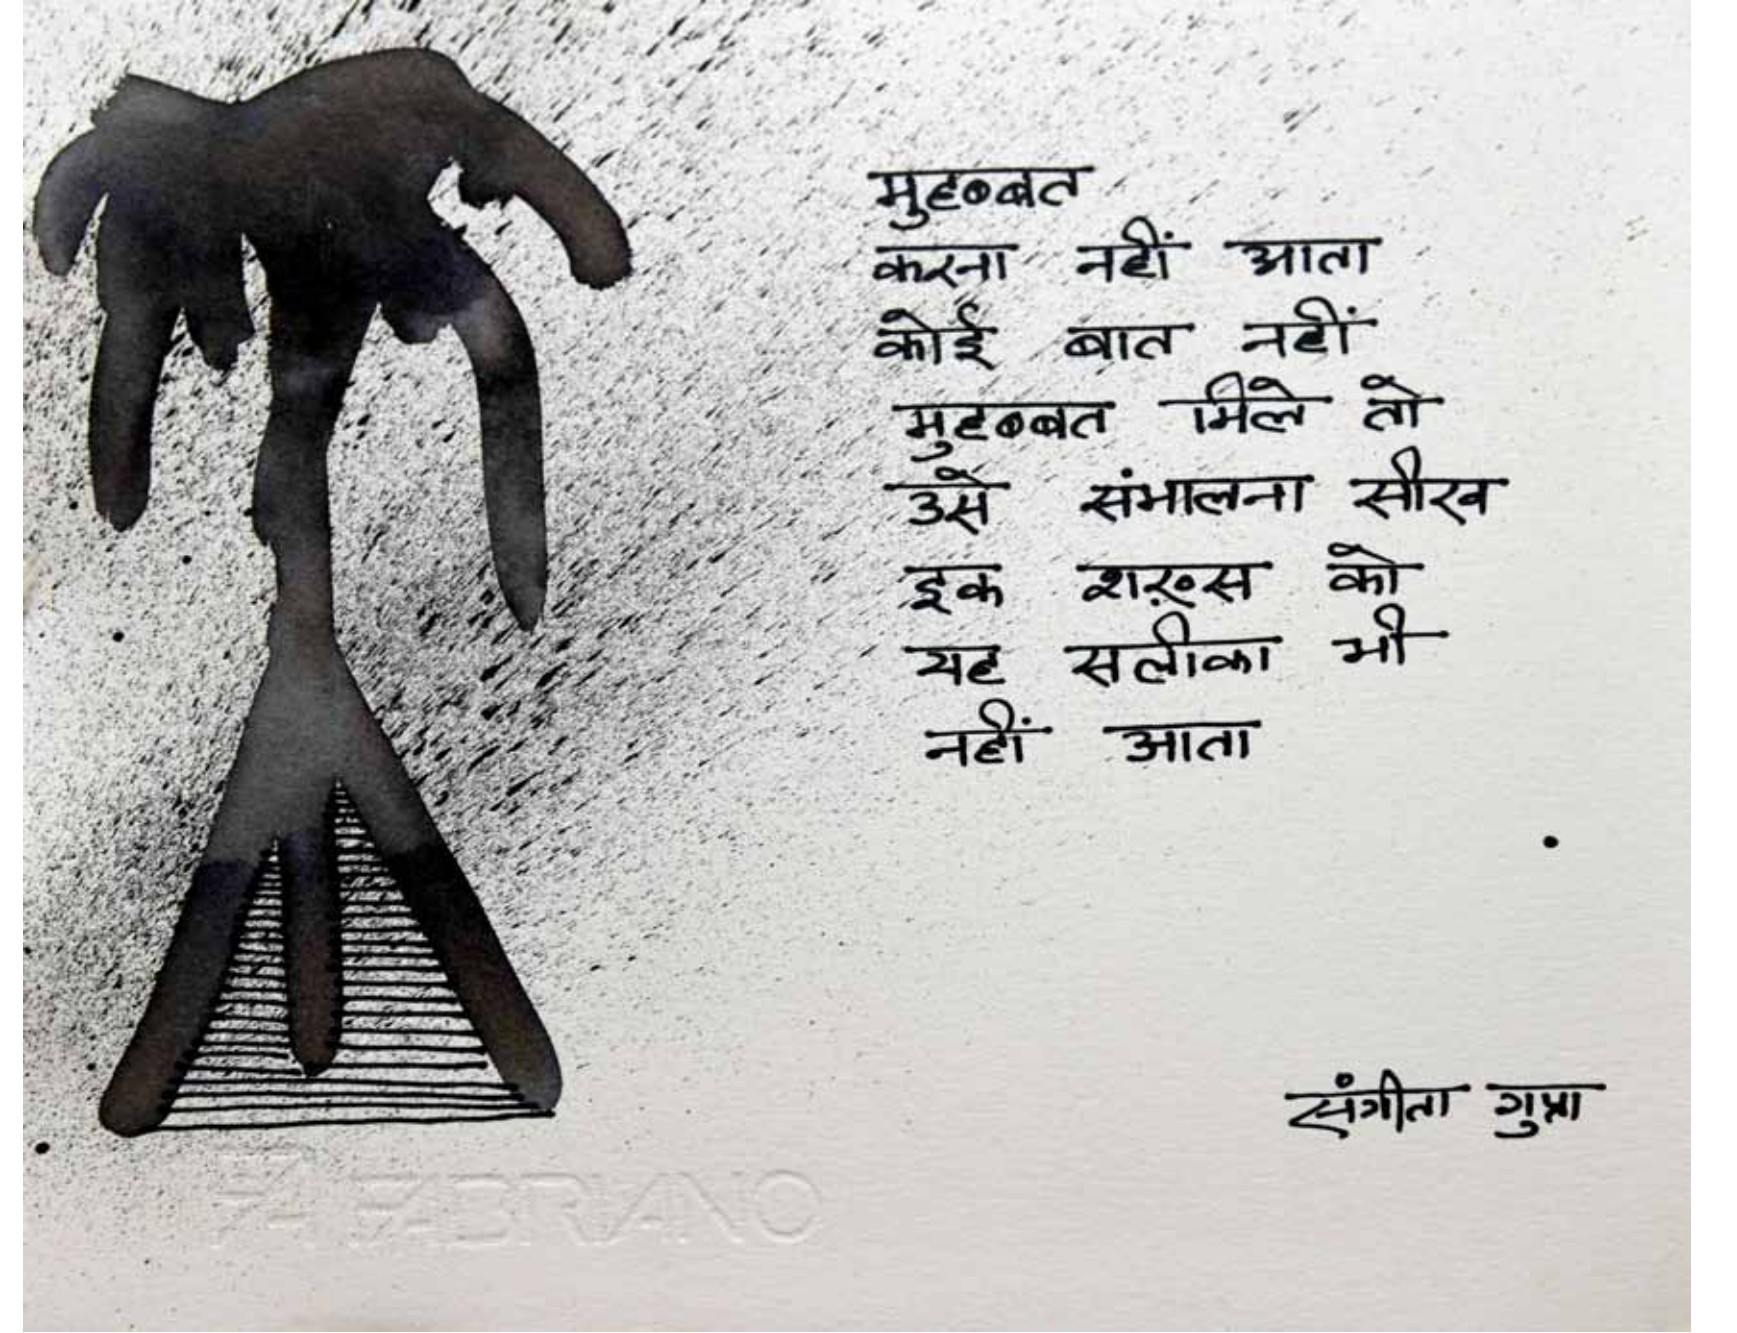 मुहब्बत
करना नहीं आता
कोई बात नहीं
मुहब्बत मिले तो
उसे संभालना सीख
इक शख़्स को
यह सलीका भी
नहीं आता
संगीता गुप्ता
FABRIANO